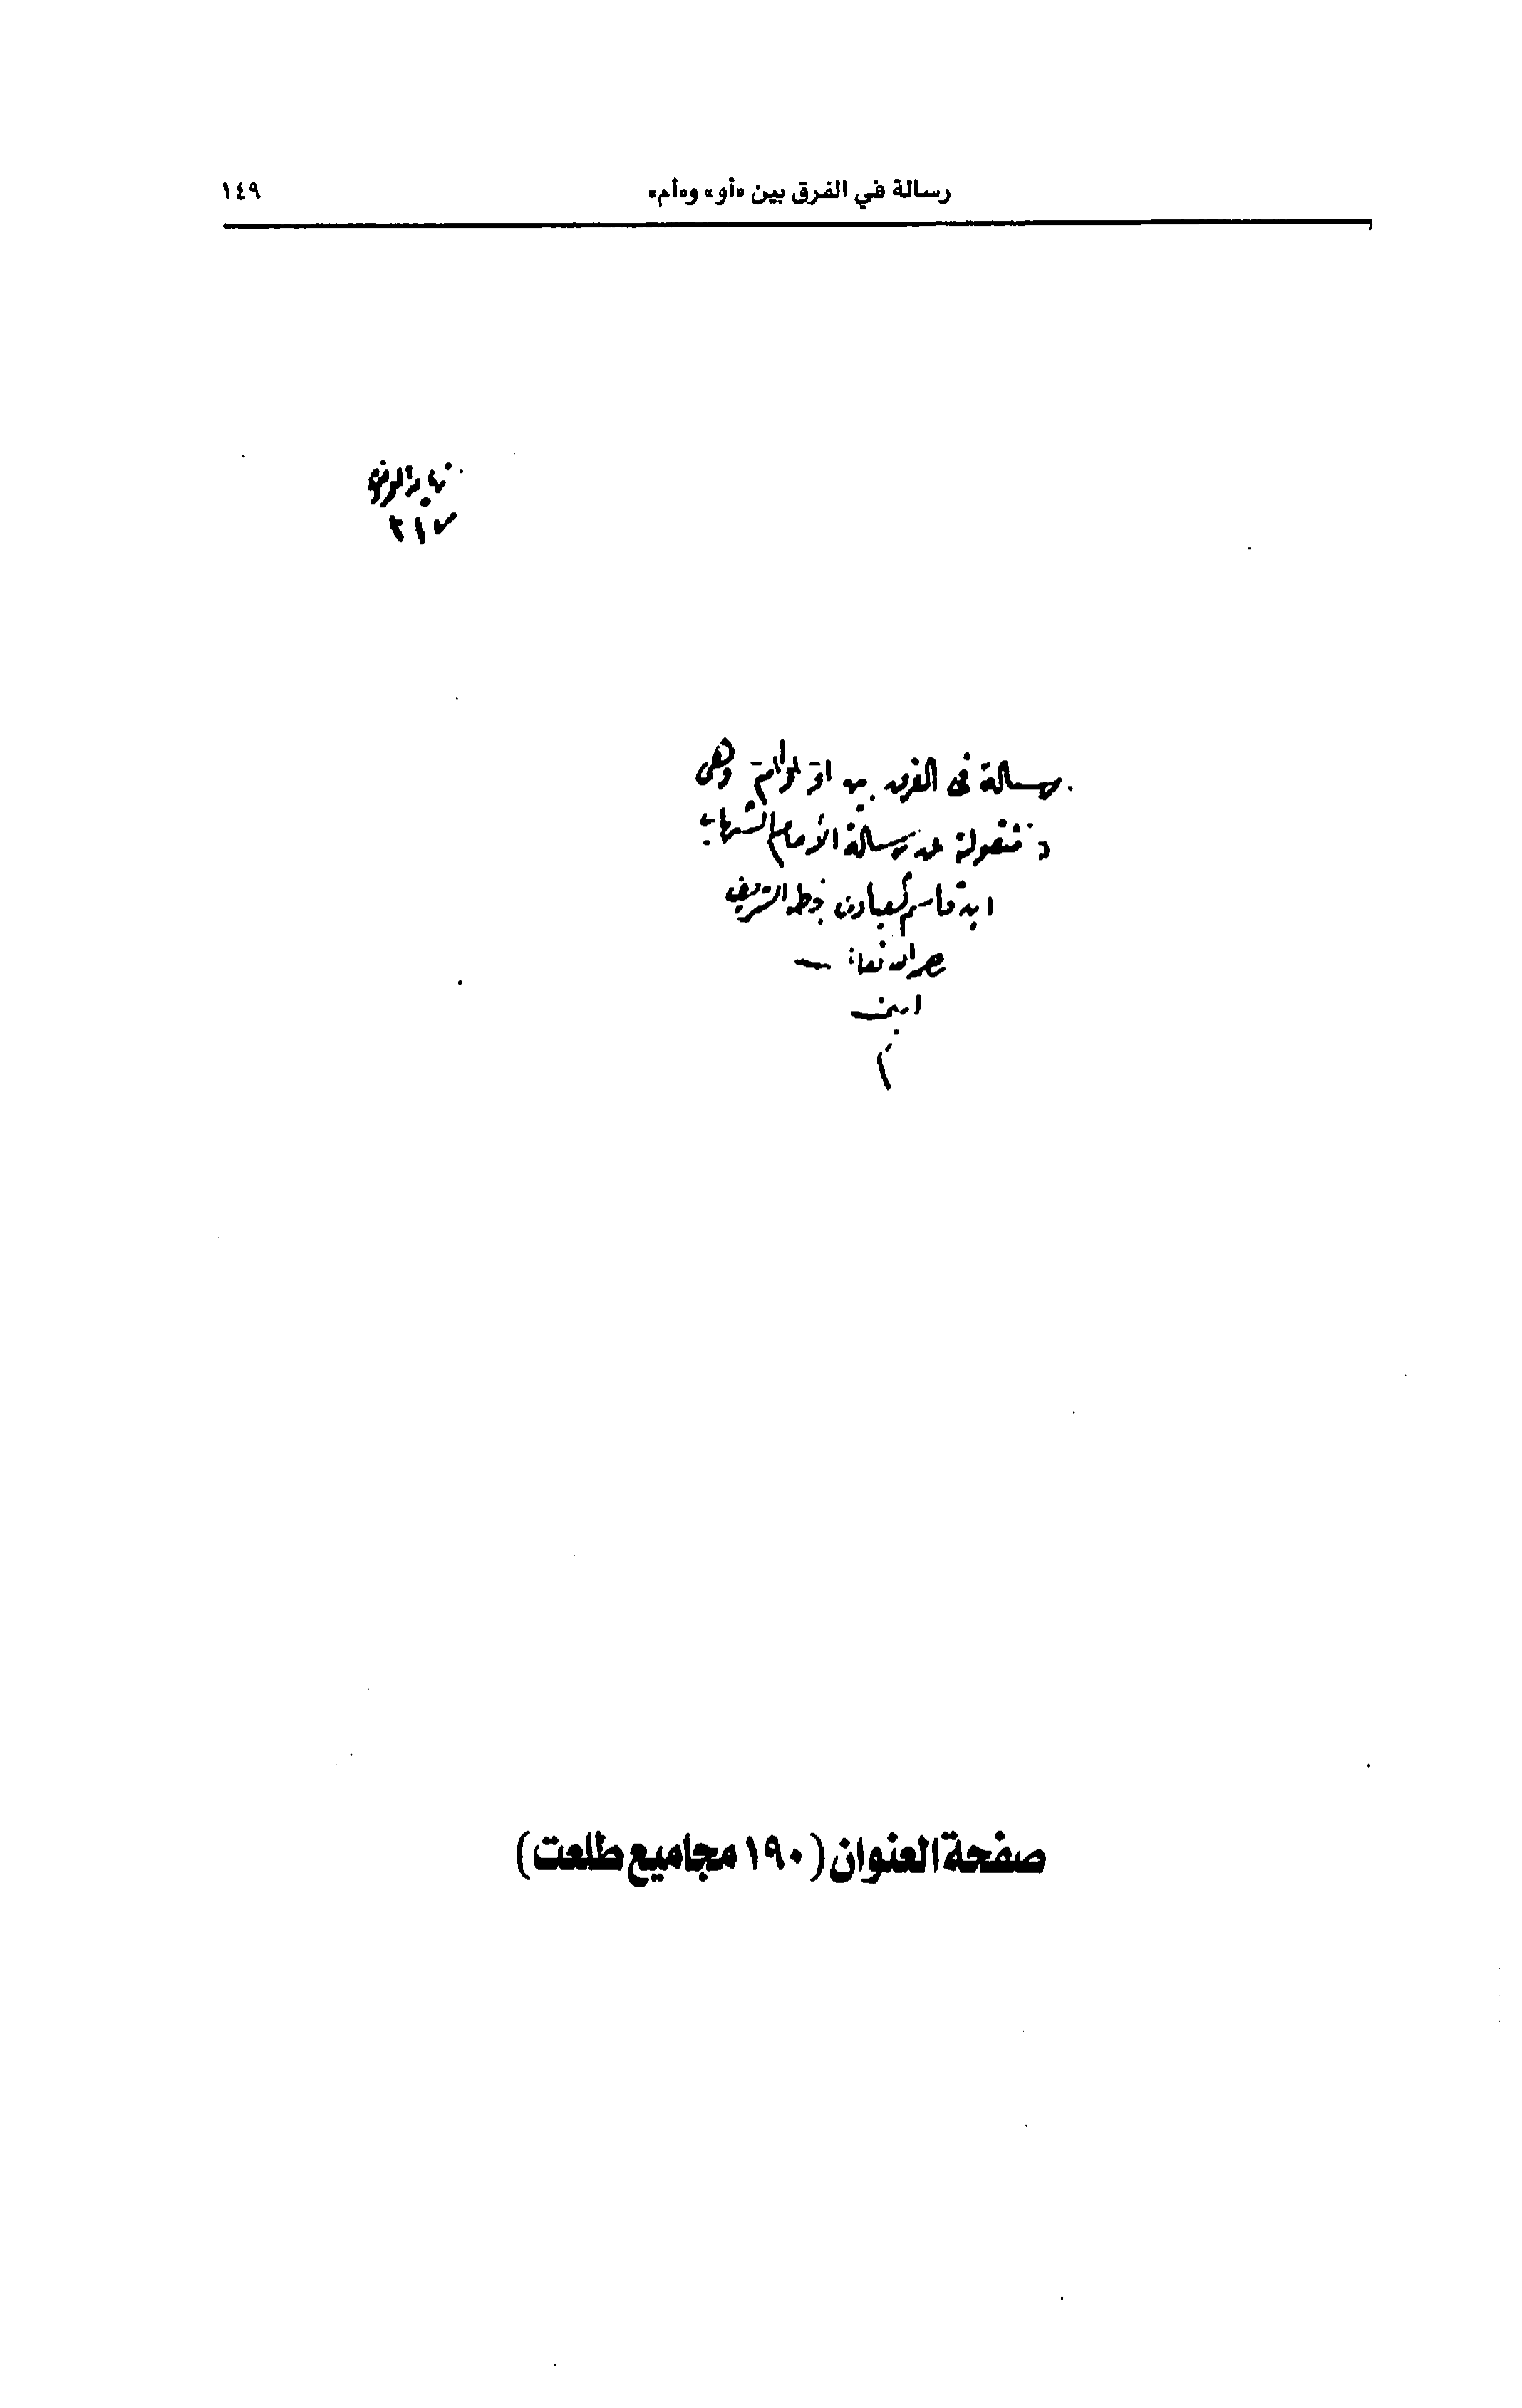 رسالة في الفرق بين «أو» و«أم» ١٤٩
٢١٧
رسالة فى الفرق بين او وام وهى
منقولة عن رسالة الأمام الشهاب
ابن قاسم العبادى بخطه الشريف
رحمه الله تعالى
امين
صفحة العنوان (١٩٠ مجاميع طلعت)